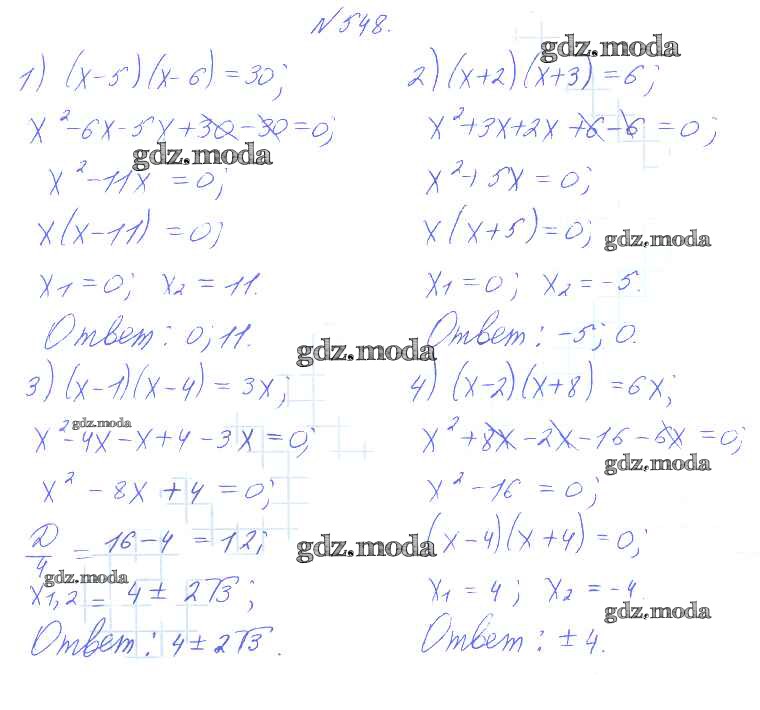 №548.
1) (x-5)(x-6)=30;
x²-6x-5x+30-30=0;
x²-11x=0;
x(x-11)=0;
x₁=0; x₂=11.
Ответ: 0; 11.
2) (x+2)(x+3)=6;
x²+3x+2x+6-6=0;
x²+5x=0;
x(x+5)=0;
x₁=0; x₂=-5.
Ответ: -5; 0.
3) (x-1)(x-4)=3x;
x²-4x-x+4-3x=0;
x²-8x+4=0;
D/4=16-4=12;
x₁,₂=4±2√3;
Ответ: 4±2√3.
4) (x-2)(x+8)=6x;
x²+8x-2x-16-6x=0;
x²-16=0;
(x-4)(x+4)=0;
x₁=4; x₂=-4.
Ответ: ±4.
gdz.moda
gdz.moda
gdz.moda
gdz.moda
gdz.moda
gdz.moda
gdz.moda
gdz.moda
gdz.moda